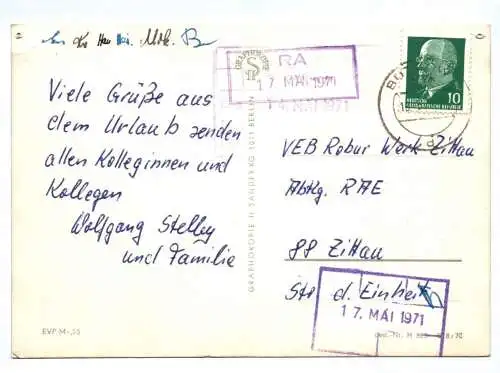 Viele Grüße aus
dem Urlaub senden
allen Kolleginnen und
Kollegen
Wolfgang Stelley
und Familie
RA
17. MAI 1971
14. MAI 1971
DEUTSCHE
DEMOKRATISCHE REPUBLIK
10
VEB Robur Werk Zittau
Abtlg. RAE
88 Zittau
Str. d. Einheit
17. MAI 1971
GRAPHOKOPIE H. SANDER KG 1071 BERLIN
EVP M -,25